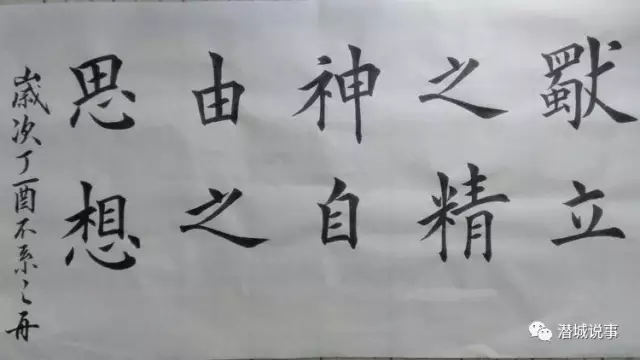 獨立
之精
神自
由之
思想
歲次丁酉不系之舟
潜城说事